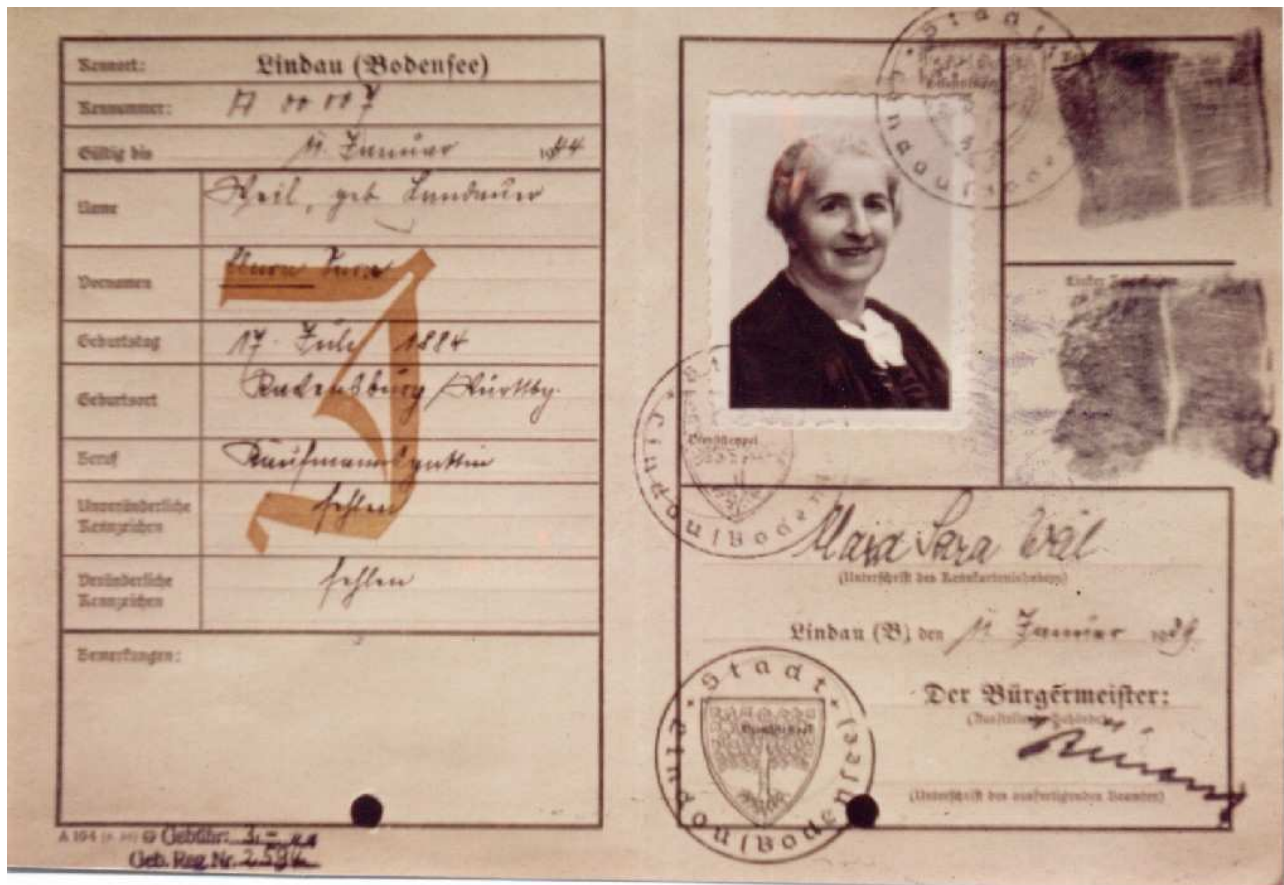 Kennort: Lindau (Bodensee)
Kennummer: A 00 007
Gültig bis 11. Januar 1944
Name Weil, geb. Landauer
Vornamen Sara
Geburtstag 17. Juli 1884
Geburtsort Ravensburg/Württbg.
Beruf Kaufmannsgattin
Unveränderliche Kennzeichen fehlen
Veränderliche Kennzeichen fehlen
Bemerkungen:
J
A 104
Gebühr: 3.-
Geb. Reg. Nr.
Stadt Lindau (Bodensee)
Linker Zeigefinger
Dienststempel
Stadt Lindau (Bodensee)
Sara Weil
(Unterschrift des Kennkarteninhabers)
Lindau (B) den 11. Januar 1939
Der Bürgermeister:
(Ausstellende Behörde)
(Unterschrift des ausfertigenden Beamten)
Stadt Lindau (Bodensee)
Dienststempel